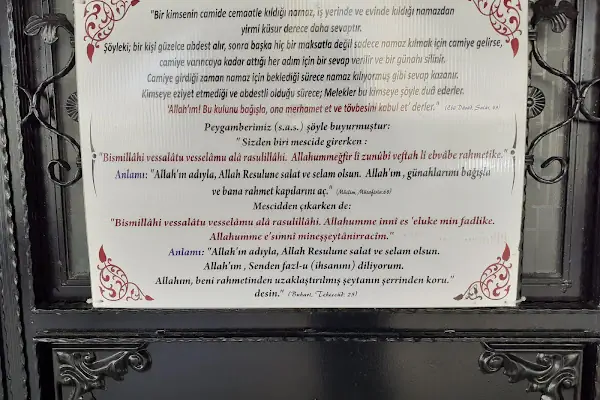 "Bir kimsenin camide cemaatle kıldığı namaz, iş yerinde ve evinde kıldığı namazdan
yirmi küsur derece daha sevaptır.
Şöyleki; bir kişi güzelce abdest alır, sonra başka hiç bir maksatla değil sadece namaz kılmak için camiye gelirse,
camiye varıncaya kadar attığı her adım için bir sevap verilir ve bir günahı silinir.
Camiye girdiği zaman namaz için beklediği sürece namaz kılıyormuş gibi sevap kazanır.
Kimseye eziyet etmediği ve abdestli olduğu sürece; Melekler bu kimseye şöyle duâ ederler.
'Allah'ım! Bu kulunu bağışla, ona merhamet et ve tövbesini kabul et' derler."
Peygamberimiz (s.a.s.) şöyle buyurmuştur:
" Sizden biri mescide girerken :
"Bismillâhi vessalâtu vesselâmu alâ rasulillâhi. Allahummeğfir lî zunûbi veftah lî ebvâbe rahmetike."
Anlamı: "Allah'ın adıyla, Allah Resulune salat ve selam olsun. Allah'ım , günahlarımı bağışla
ve bana rahmet kapılarını aç."
Mescidden çıkarken de:
"Bismillâhi vessalâtu vesselâmu alâ rasulillâhi. Allahumme innî es 'eluke min fadlike.
Allahumme e'sımnî mineşşeytânirracîm."
Anlamı: "Allah'ın adıyla, Allah Resulune salat ve selam olsun.
Allah'ım , Senden fazl-u (ihsanını) diliyorum.
Allahım, beni rahmetinden uzaklaştırılmış şeytanın şerrinden koru."
desin."